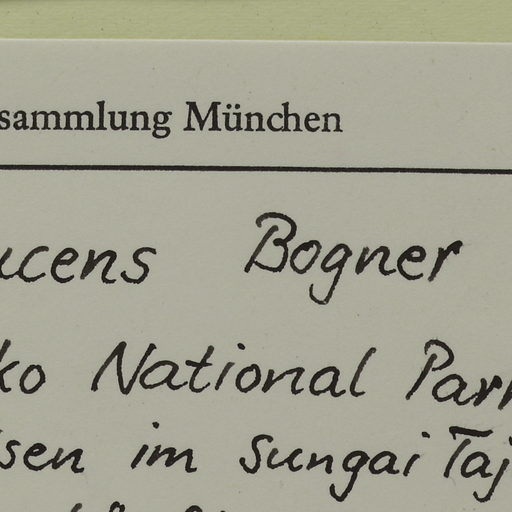 sammlung München
ucens Bogner
ko National Park
sen im Sungai Taj